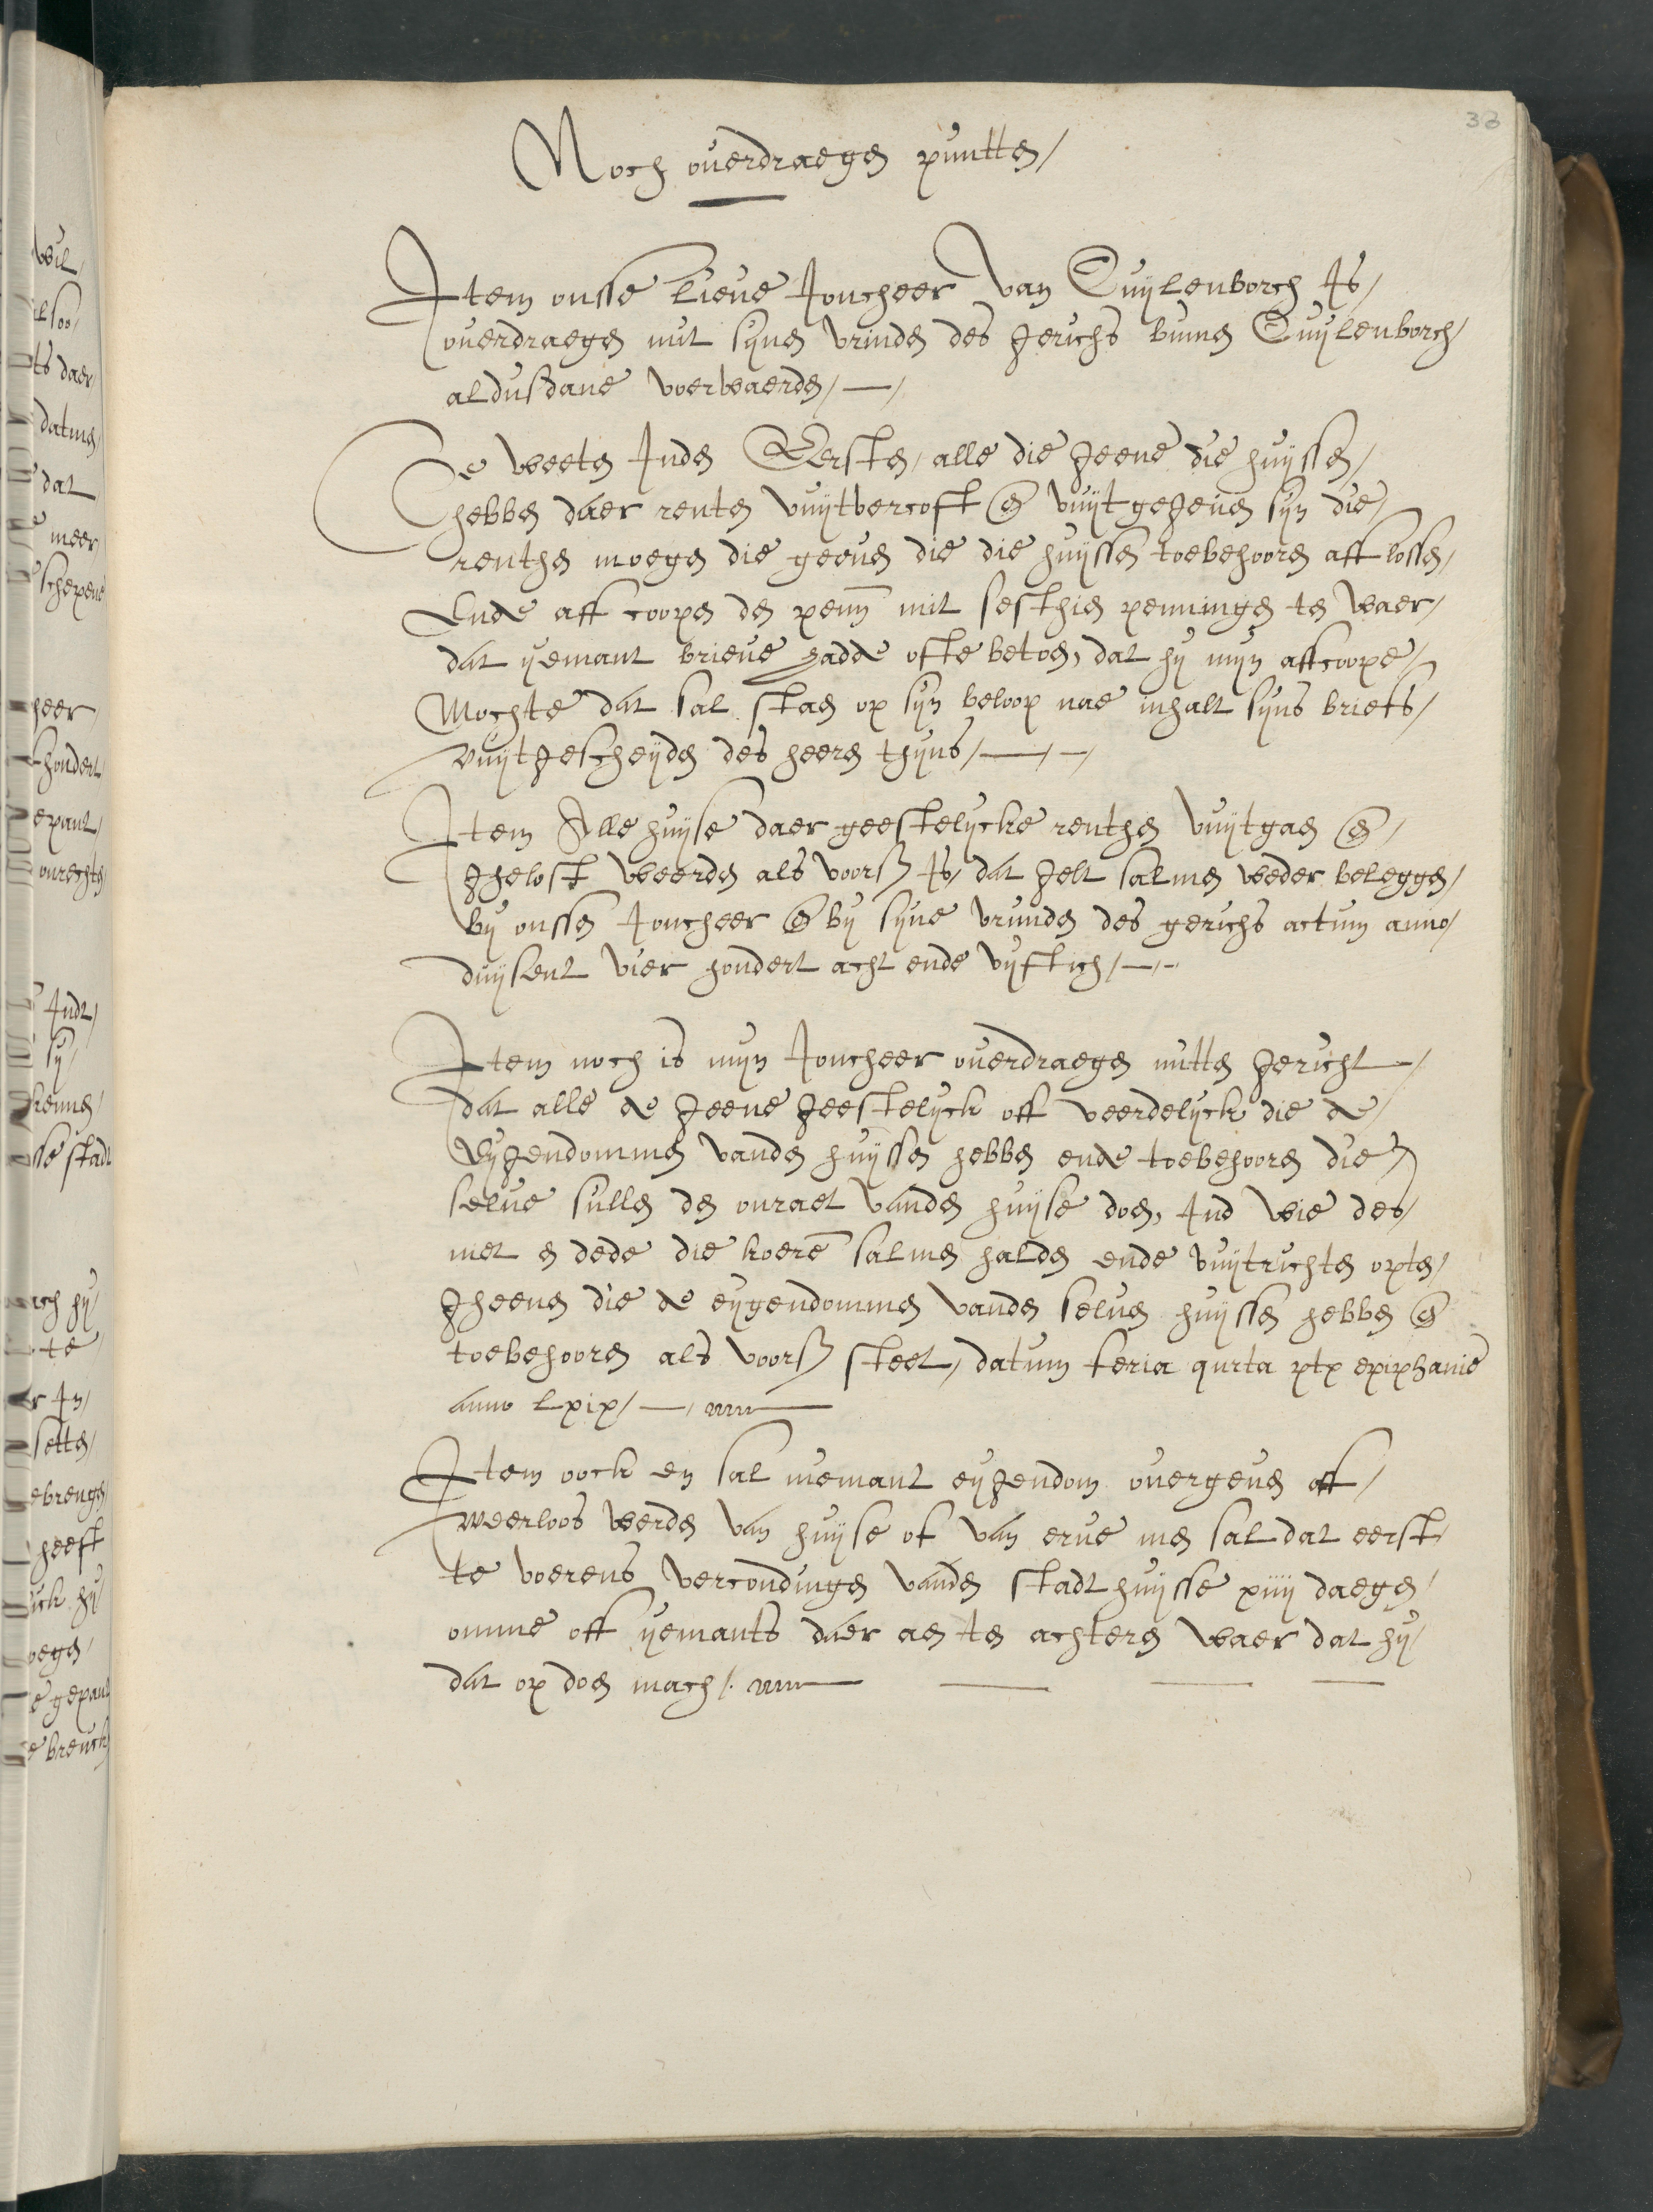 33
Noch ouerdraegen puntten/
Item onsse lieue Joncheer van Cuijlenborch Is/
ouerdraegen mit sijnen vrinden des gerichs binnen Cuijlenborch/
aldusdane voerwaerden/ —/
Te weeten Inden Eersten/ alle die geene die huijssen/
hebben daer renten vuijtvercoft en vuijtgegeuen sijn die/
renthen moegen die geenen die die huijssen toebehooren aff lossen/
Ende aff coopen den penn mit sesthien penningen ten waer/
dat yemant brieue hadde ofte betoen, dat hij mijn affcoope/
Mochte dat sal staen op sijn beloop nae inhalt sijns briefs/
vuijtgescheijden des heeren thijns/ —/ —/
Item Alle huijse daer geestelijcke renthen vuijtgaen en/
Ghelost weerden als voorß Is/ dat gelt salmen weder beleggen/
bij onssen Joncheer en bij sijne vrunden des gerichs actum anno/
duijsent vier hondert acht ende vijftich/ —/
Item noch is mijn Joncheer ouerdraegen mitten gericht/
dat alle de geene geestelijck off weerdelijck die de/
Eijgendommen vanden huijssen hebben ende toebehooren die/
selue sullen den onraet vanden huijse doen, Ind wie des/
niet en dede die koere salmen halden ende vuijtrichten opten/
Gheenen die de eijgendommen vanden seluen huijssen hebben en
toebehooren als voorß steet/ datum feria qurta ptx epiphanie
anno lxix/ —/
Item oock en sal niemant eijgendom ouergeuen off/
weerloos werden van huijse of van erue men sal dat eerst
te voerens vercondingen vanden stadthuijsse xiiij daegen/
omme off yemants daer aen ten achteren waer dat hij/
dat op doen mach/.
wil/
lsoo/
ts daer/
datmen/
dat
meer/
schepene
heer/
hondert
epant/
onrechten
Indt/
sij/
kennen/
sse stadt
ich hij/
te
r In/
setten/
ebrengen
heeft
ick hij/
oegen/
e gepant
e breuck